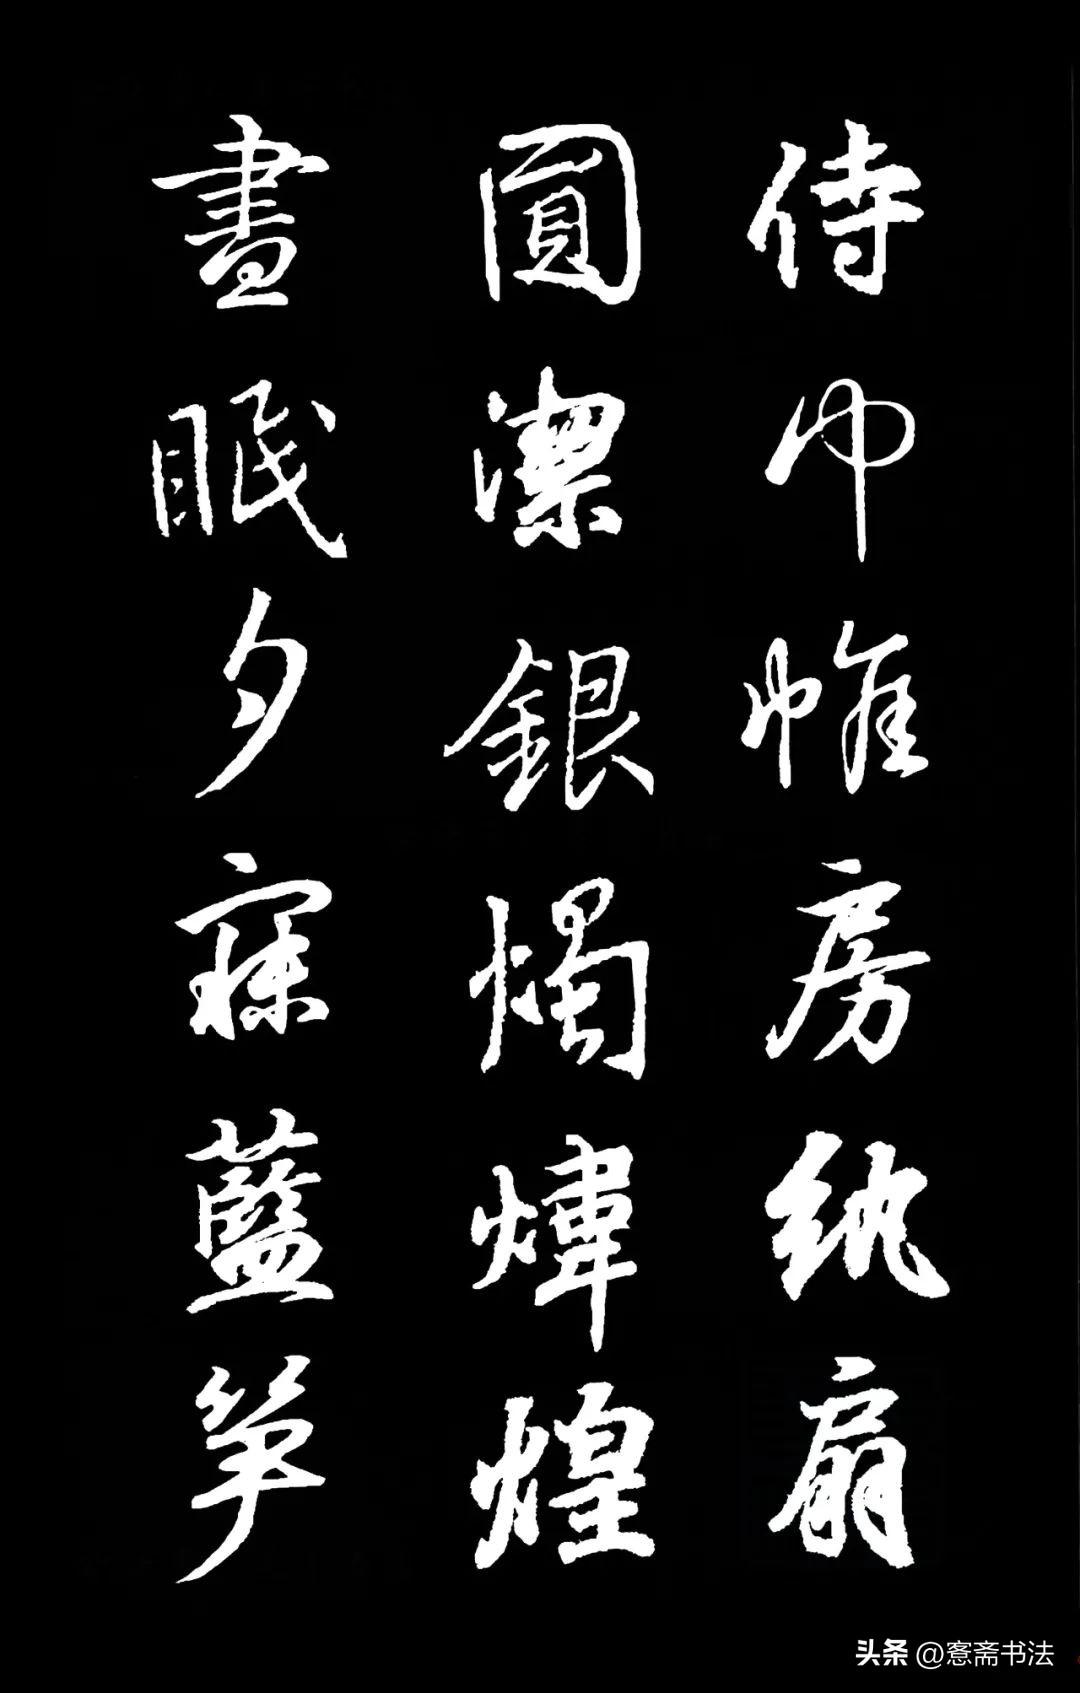 侍巾帷房纨扇
圓潔銀燭煒煌
晝眠夕寐藍笋
头条 @愙斋书法